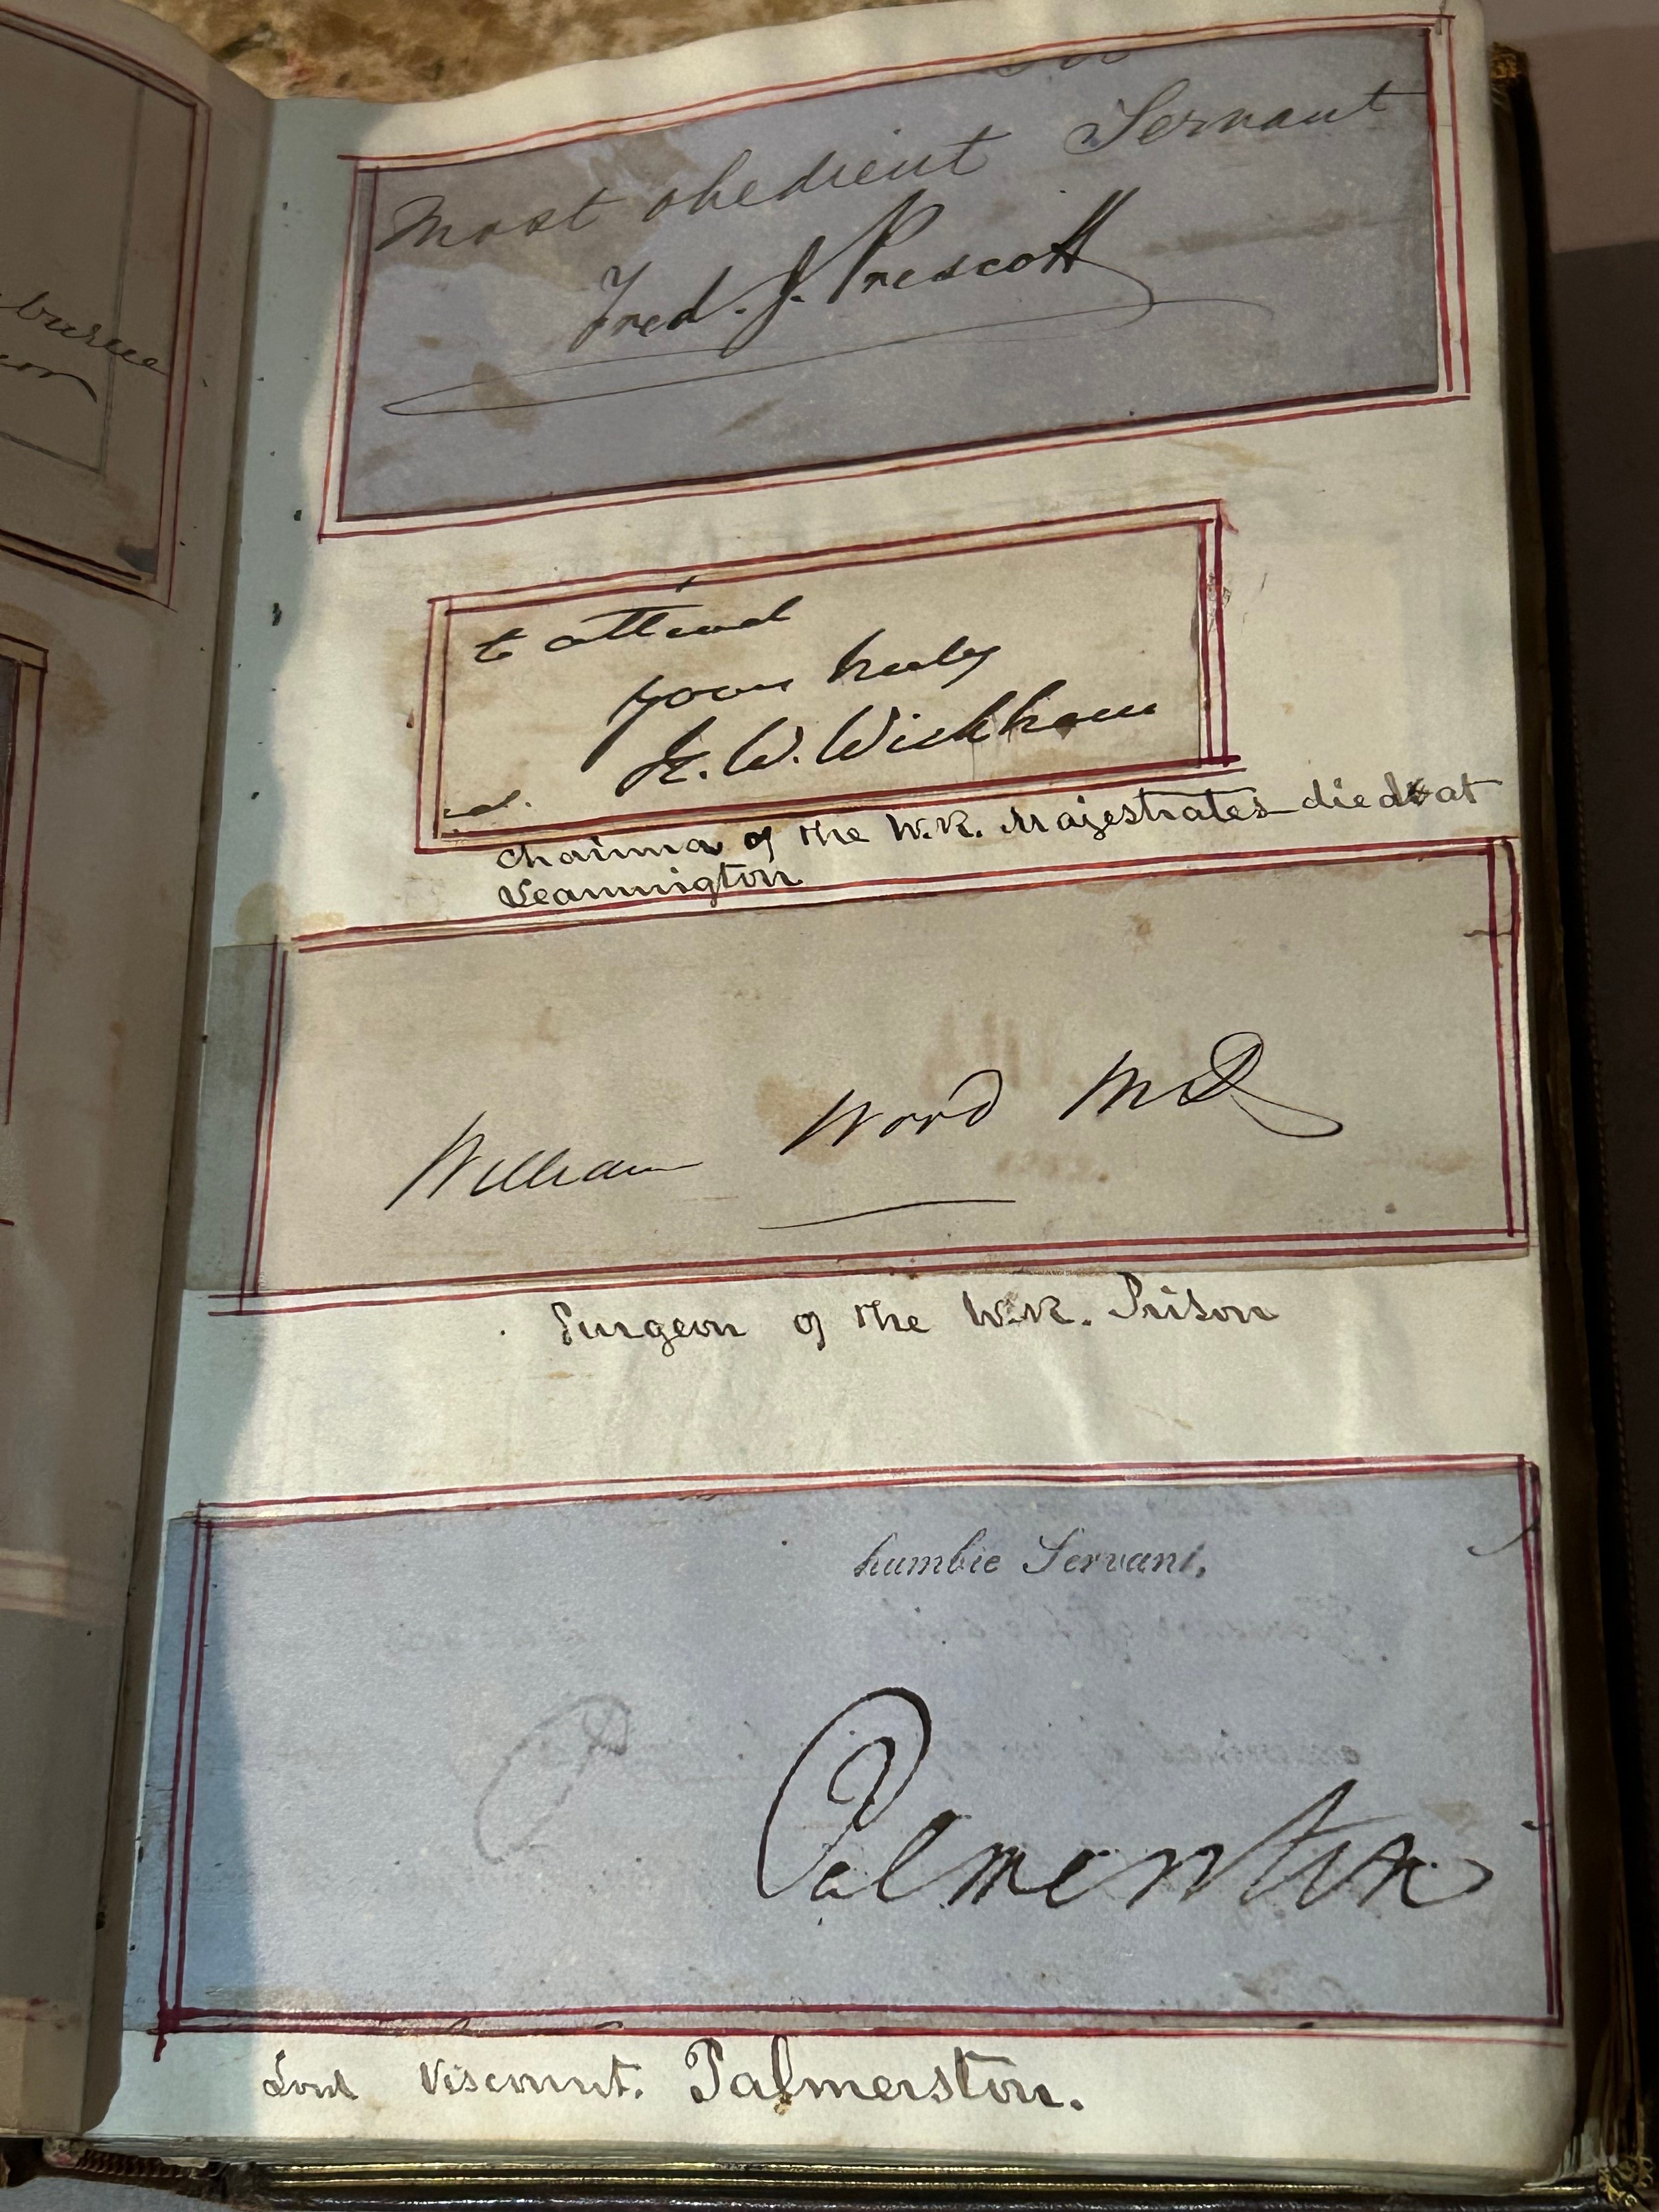 Most obedient Servant
Fred. J. Prescott
to attend
yours truly
W. Wickham
Chairman of the W.R. Majestrates died at
Leamnigton
William Wood MD
Surgeon of the W.R. Prison
humble Servant,
Palmerston
Lord Viscount. Palmerston.